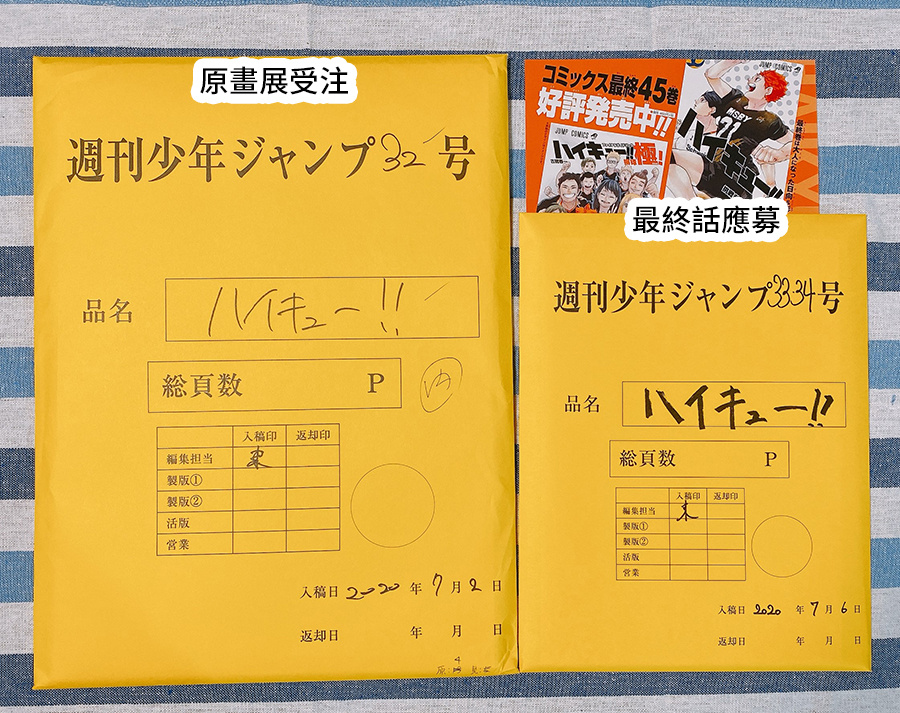 原畫展受注
週刊少年ジャンプ32号
品名
ハイキュー!!
総頁数 P
入稿印 返却印
編集担当
製版①
製版②
活版
営業
入稿日 2020 年 7 月 2 日
返却日 年 月 日
JUMP COMICS
コミックス最終45巻
好評発売中!!
JUMP COMICS
ハイキュー!!
極!
MSBY
21
ハイキュー
最終巻は大人になった日向
最終話應募
週刊少年ジャンプ33.34号
品名
ハイキュー!!
総頁数 P
入稿印 返却印
編集担当
製版①
製版②
活版
営業
入稿日 2020 年 7 月 6 日
返却日 年 月 日